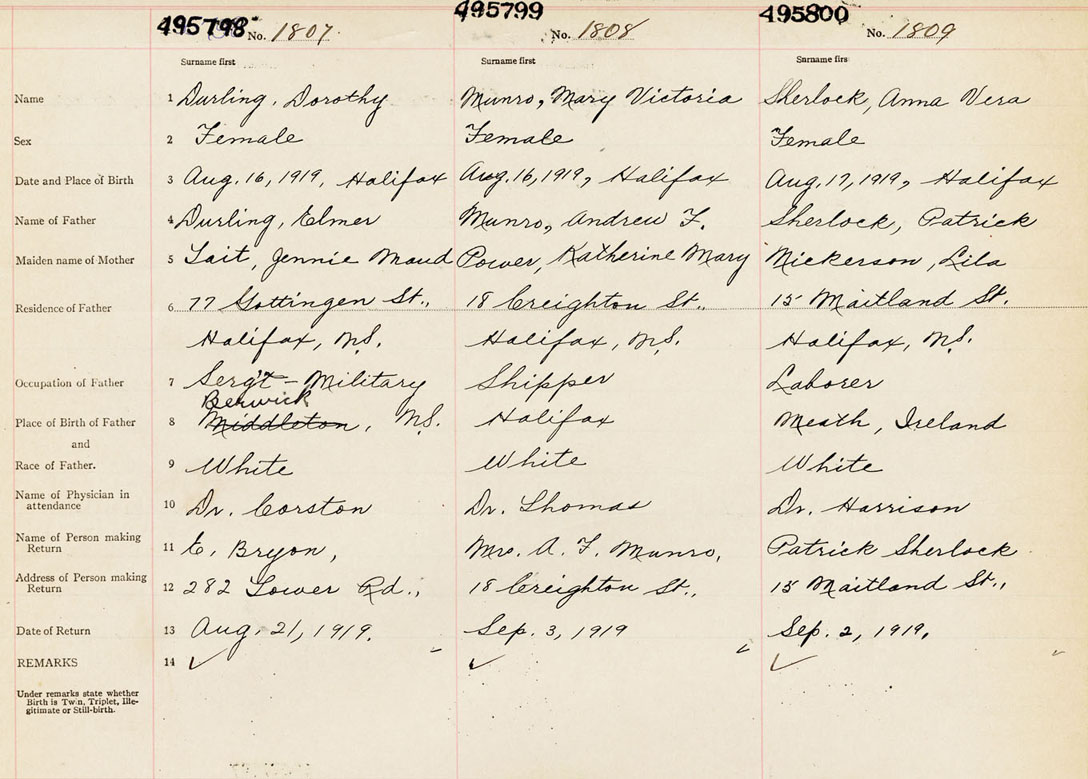 495798 495799 495800
No. 1807. No. 1808 No. 1809
Surname first Surname first Surname firs
Name 1 Durling, Dorothy Munro, Mary Victoria Sherlock, Anna Vera
Sex 2 Female Female Female
Date and Place of Birth 3 Aug. 16, 1919, Halifax Aug. 16, 1919, Halifax Aug. 17, 1919, Halifax
Name of Father 4 Durling, Elmer Munro, Andrew F. Sherlock, Patrick
Maiden name of Mother 5 Tait, Jennie Maud Power, Katherine Mary Nickerson, Lila
Residence of Father 6 77 Gottingen St., 18 Creighton St., 15 Maitland St.
Halifax, N.S. Halifax, N.S. Halifax, N.S.
Occupation of Father 7 Serg't - Military Shipper Laborer
Berwick
Place of Birth of Father 8 Middleton, N.S. Halifax Meath, Ireland
and
Race of Father. 9 White White White
Name of Physician in
attendance 10 Dr. Corston Dr. Thomas Dr. Harrison
Name of Person making
Return 11 E. Bryon, Mrs. A. F. Munro, Patrick Sherlock
Address of Person making
Return 12 282 Tower Rd., 18 Creighton St., 15 Maitland St.,
Date of Return 13 Aug. 21, 1919. Sep. 3, 1919 Sep. 2, 1919.
REMARKS 14 ✓ ✓ ✓
Under remarks state whether
Birth is Twin, Triplet, Ille-
gitimate or Still-birth.